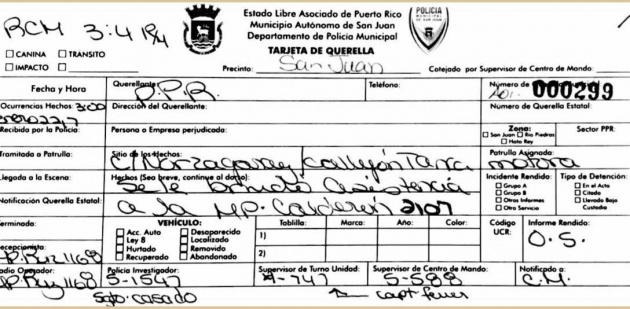 BCM 3:4
Estado Libre Asociado de Puerto Rico
Municipio Autónomo de San Juan
Departamento de Policía Municipal
TARJETA DE QUERELLA
POLICIA
CANINA TRANSITO
IMPACTO
Precinto: San Juan
Cotejado por Supervisor de Centro de Mando:
Fecha y Hora
Querellante: O.P.R.
Teléfono:
Número de
000299
Ocurrencias Hechos: 3:00
Dirección del Querellante:
Número de Querella Estatal:
Recibida por la Policía:
Persona o Empresa perjudicada:
Zona:
San Juan Río Piedras
Hato Rey
Sector PPR:
Tramitada a Patrulla:
Sitio de los Hechos:
C/ Norzagaray Callejón
Patrulla Asignada:
motora
Llegada a la Escena:
Hechos (Sea breve, continue al dorso):
Se le brindó asistencia
a la MP. Calderón 2107
Incidente Rendido:
Grupo A
Grupo B
Otros Informes
Otro Servicio
Tipo de Detención:
En el Acto
Citado
Llevado Bajo
Custodia
Notificación Querella Estatal:
Terminada:
VEHÍCULO:
Acc. Auto Desaparecido
Ley 8 Localizado
Hurtado Removido
Recuperado Abandonado
Tablilla: Marca: Año: Color:
1)
2)
Código
UCR:
Informe Rendido:
O.S.
Recepcionista:
P. Ruz 1168
Radio Operador:
P. Ruz 1168
Policía Investigador:
5-1547
Sgto. Casado
Supervisor de Turno Unidad:
4-747
Supervisor de Centro de Mando:
5-588
Capt
Notificado a:
C.M.